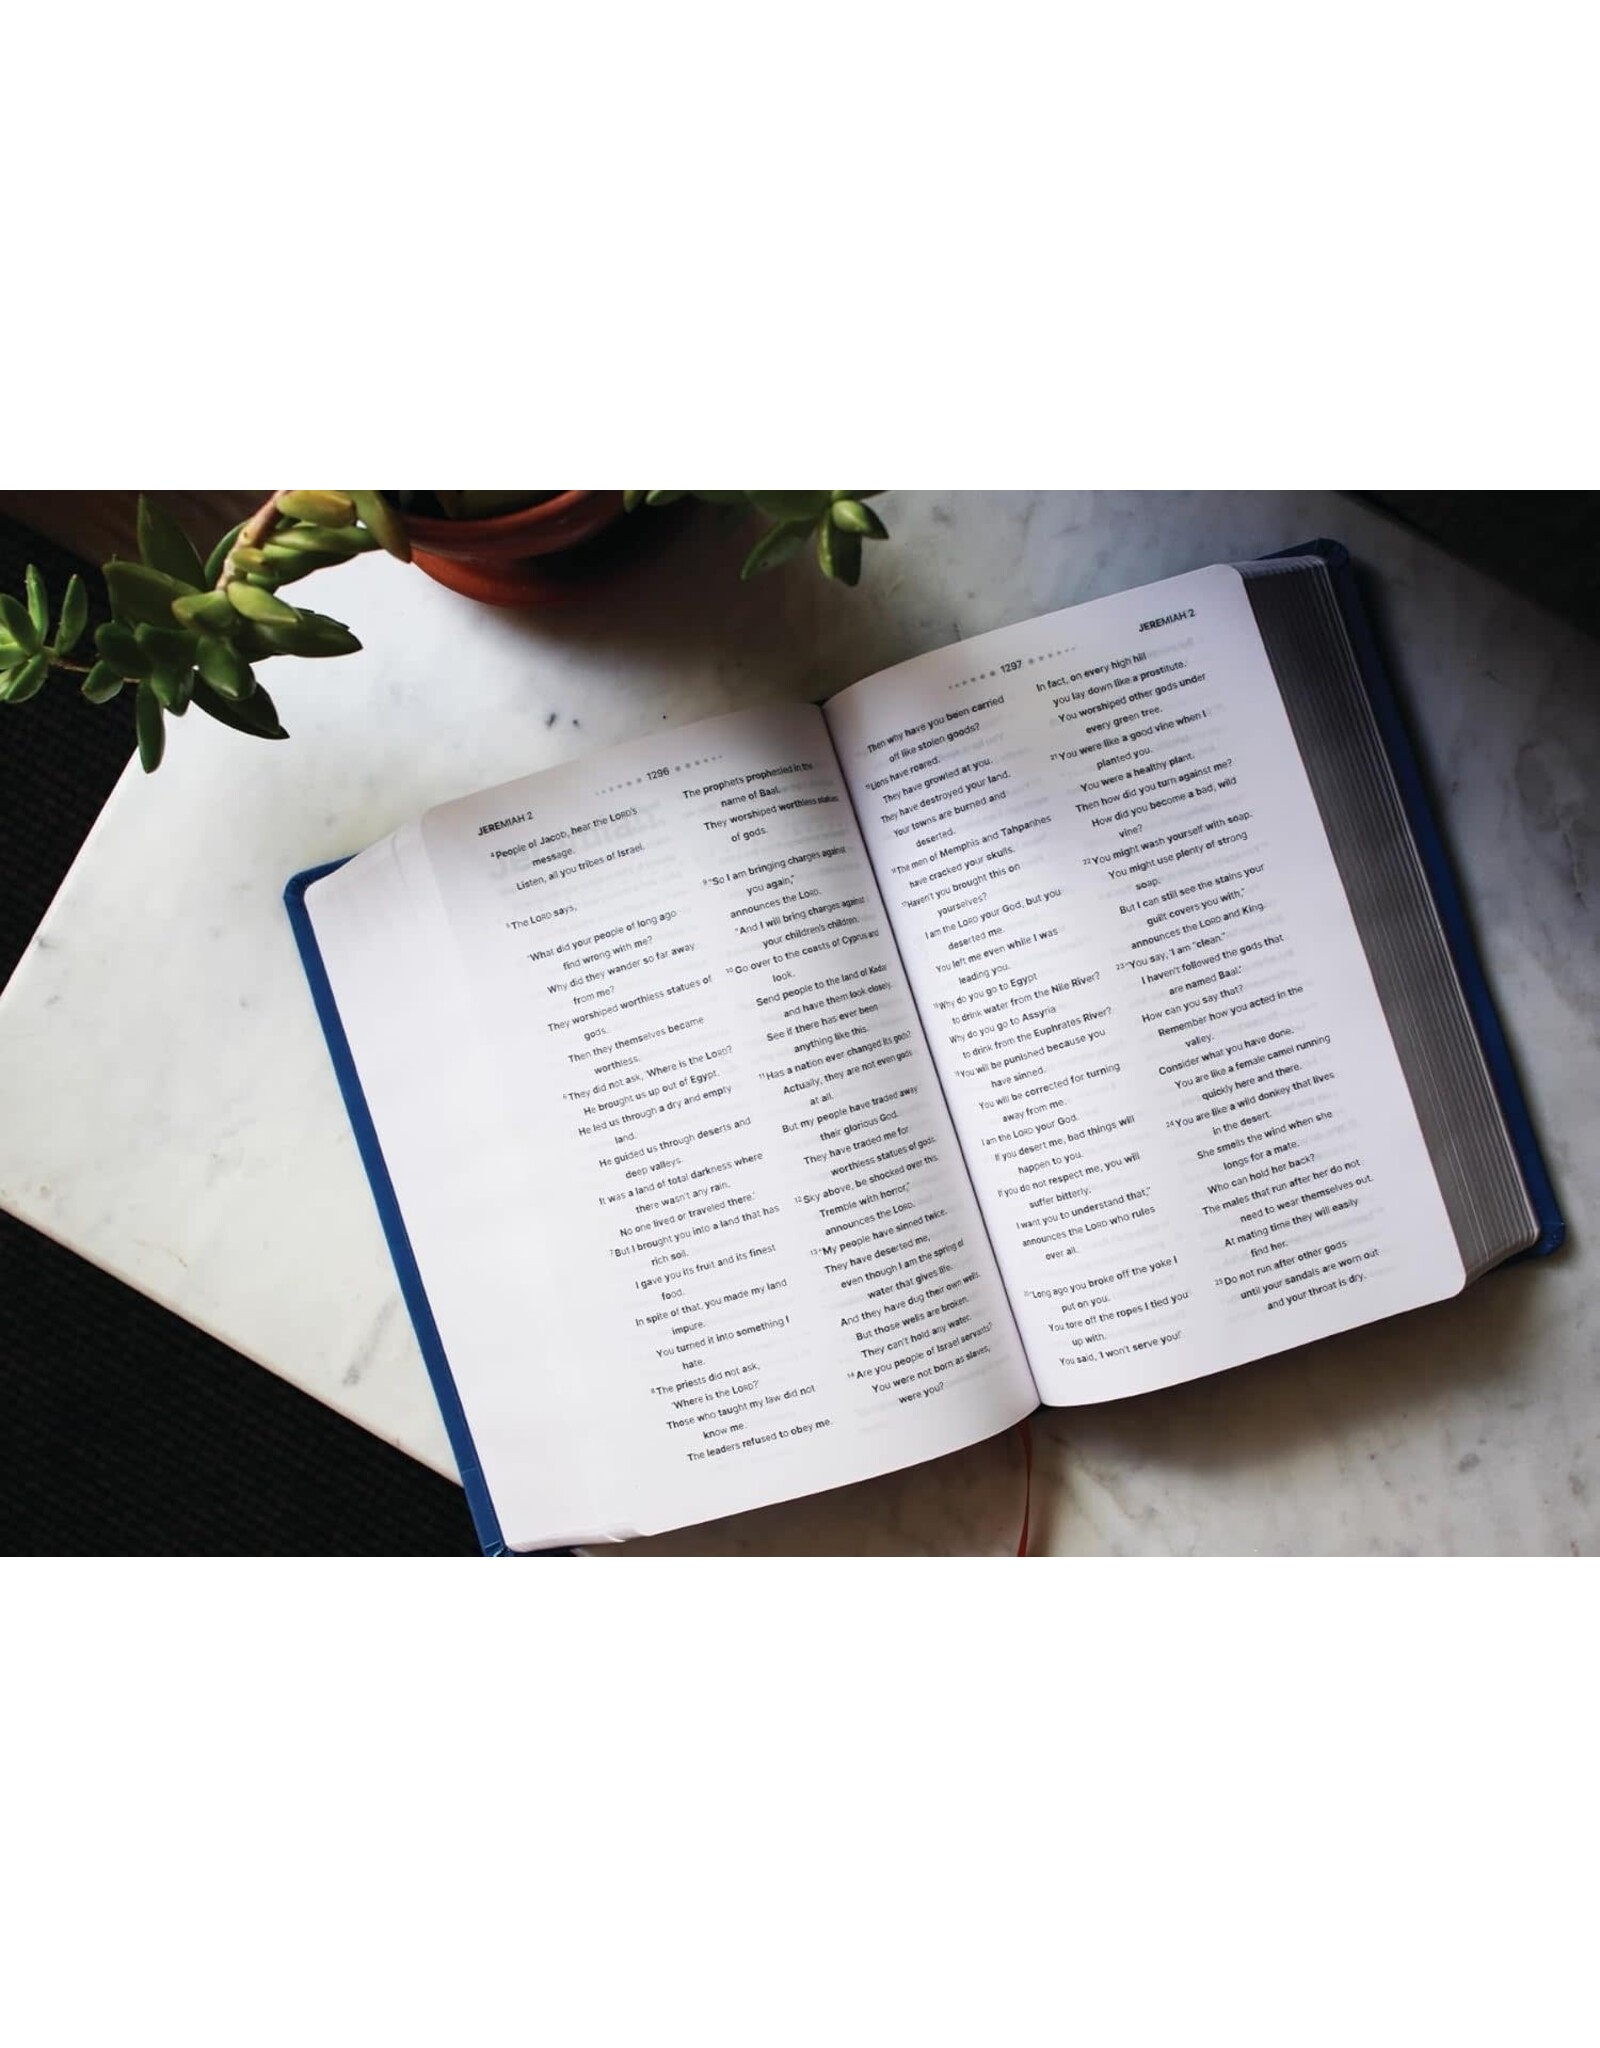 JEREMIAH 2
1296
4 People of Jacob, hear the LORD's
message.
Listen, all you tribes of Israel.
5 The LORD says,
"What did your people of long ago
find wrong with me?
Why did they wander so far away
from me?
They worshiped worthless statues of
gods.
Then they themselves became
worthless.
6 They did not ask, 'Where is the LORD?
He brought us up out of Egypt.
He led us through a dry and empty
land.
He guided us through deserts and
deep valleys.
It was a land of total darkness where
there wasn't any rain.
No one lived or traveled there.'
7 But I brought you into a land that has
rich soil.
I gave you its fruit and its finest
food.
In spite of that, you made my land
impure.
You turned it into something I
hate.
8 The priests did not ask,
'Where is the LORD?'
Those who taught my law did not
know me.
The leaders refused to obey me.
The prophets prophesied in the
name of Baal.
They worshiped worthless statues
of gods.
9 "So I am bringing charges against
you again,"
announces the LORD.
"And I will bring charges against
your children's children.
10 Go over to the coasts of Cyprus and
look.
Send people to the land of Kedar
and have them look closely.
See if there has ever been
anything like this.
11 Has a nation ever changed its gods?
Actually, they are not even gods
at all.
But my people have traded away
their glorious God.
They have traded me for
worthless statues of gods.
12 Sky above, be shocked over this.
Tremble with horror,"
announces the LORD.
13 "My people have sinned twice.
They have deserted me,
even though I am the spring of
water that gives life.
And they have dug their own wells.
But those wells are broken.
They can't hold any water.
14 Are you people of Israel servants?
You were not born as slaves,
were you?
1297
JEREMIAH 2
Then why have you been carried
off like stolen goods?
15 Lions have roared.
They have growled at you.
They have destroyed your land.
Your towns are burned and
deserted.
16 The men of Memphis and Tahpanhes
have cracked your skulls.
17 Haven't you brought this on
yourselves?
I am the LORD your God, but you
deserted me.
You left me even while I was
leading you.
18 Why do you go to Egypt
to drink water from the Nile River?
Why do you go to Assyria
to drink from the Euphrates River?
19 You will be punished because you
have sinned.
You will be corrected for turning
away from me.
I am the LORD your God.
If you desert me, bad things will
happen to you.
If you do not respect me, you will
suffer bitterly.
I want you to understand that,"
announces the LORD who rules
over all.
20 "Long ago you broke off the yoke I
put on you.
You tore off the ropes I tied you
up with.
You said, 'I won't serve you!'
In fact, on every high hill
you lay down like a prostitute.
You worshiped other gods under
every green tree.
21 You were like a good vine when I
planted you.
You were a healthy plant.
Then how did you turn against me?
How did you become a bad, wild
vine?
22 You might wash yourself with soap.
You might use plenty of strong
soap.
But I can still see the stains your
guilt covers you with,"
announces the LORD and King.
23 "You say, 'I am "clean."
I haven't followed the gods that
are named Baal.'
How can you say that?
Remember how you acted in the
valley.
Consider what you have done.
You are like a female camel running
quickly here and there.
24 You are like a wild donkey that lives
in the desert.
She smells the wind when she
longs for a mate.
Who can hold her back?
The males that run after her do not
need to wear themselves out.
At mating time they will easily
find her.
25 Do not run after other gods
until your sandals are worn out
and your throat is dry.